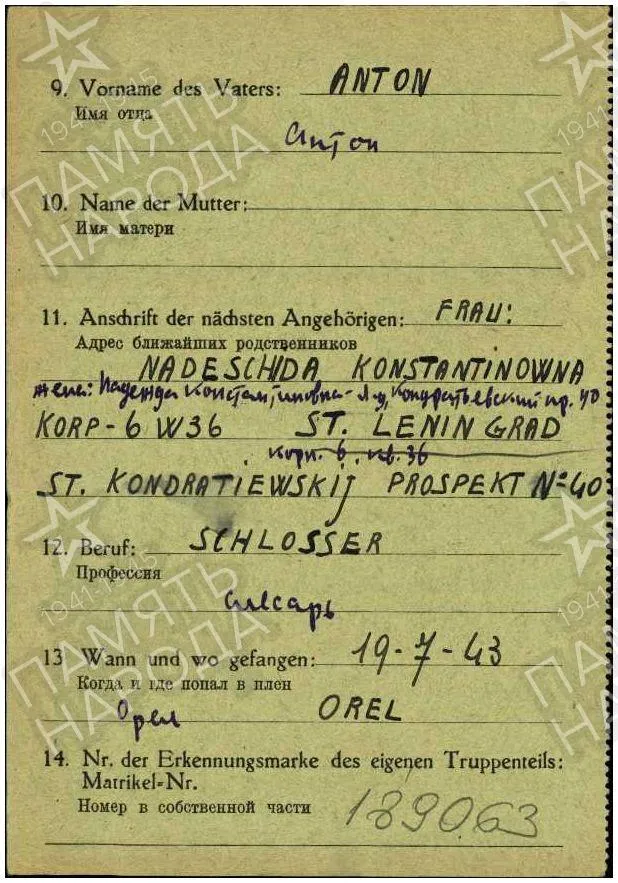 9. Vorname des Vaters: ANTON
Имя отца
Антон
10. Name der Mutter:
Имя матери
11. Anschrift der nächsten Angehörigen: FRAU:
Адрес ближайших родственников
NADESCHDA KONSTANTINOWNA
жена: Надежда Константиновна - Л-д, Кондратьевский пр. 40
KORP-6 W36 ST. LENINGRAD
корп. 6, кв. 36
ST. KONDRATIEWSKIJ PROSPEKT №40
12. Beruf: SCHLOSSER
Профессия
Слесарь
13 Wann und wo gefangen: 19-7-43
Когда и где попал в плен
Орел OREL
14. Nr. der Erkennungsmarke des eigenen Truppenteils:
Matrikel-Nr.
Номер в собственной части 189063
ПАМЯТЬ НАРОДА
1941-1945